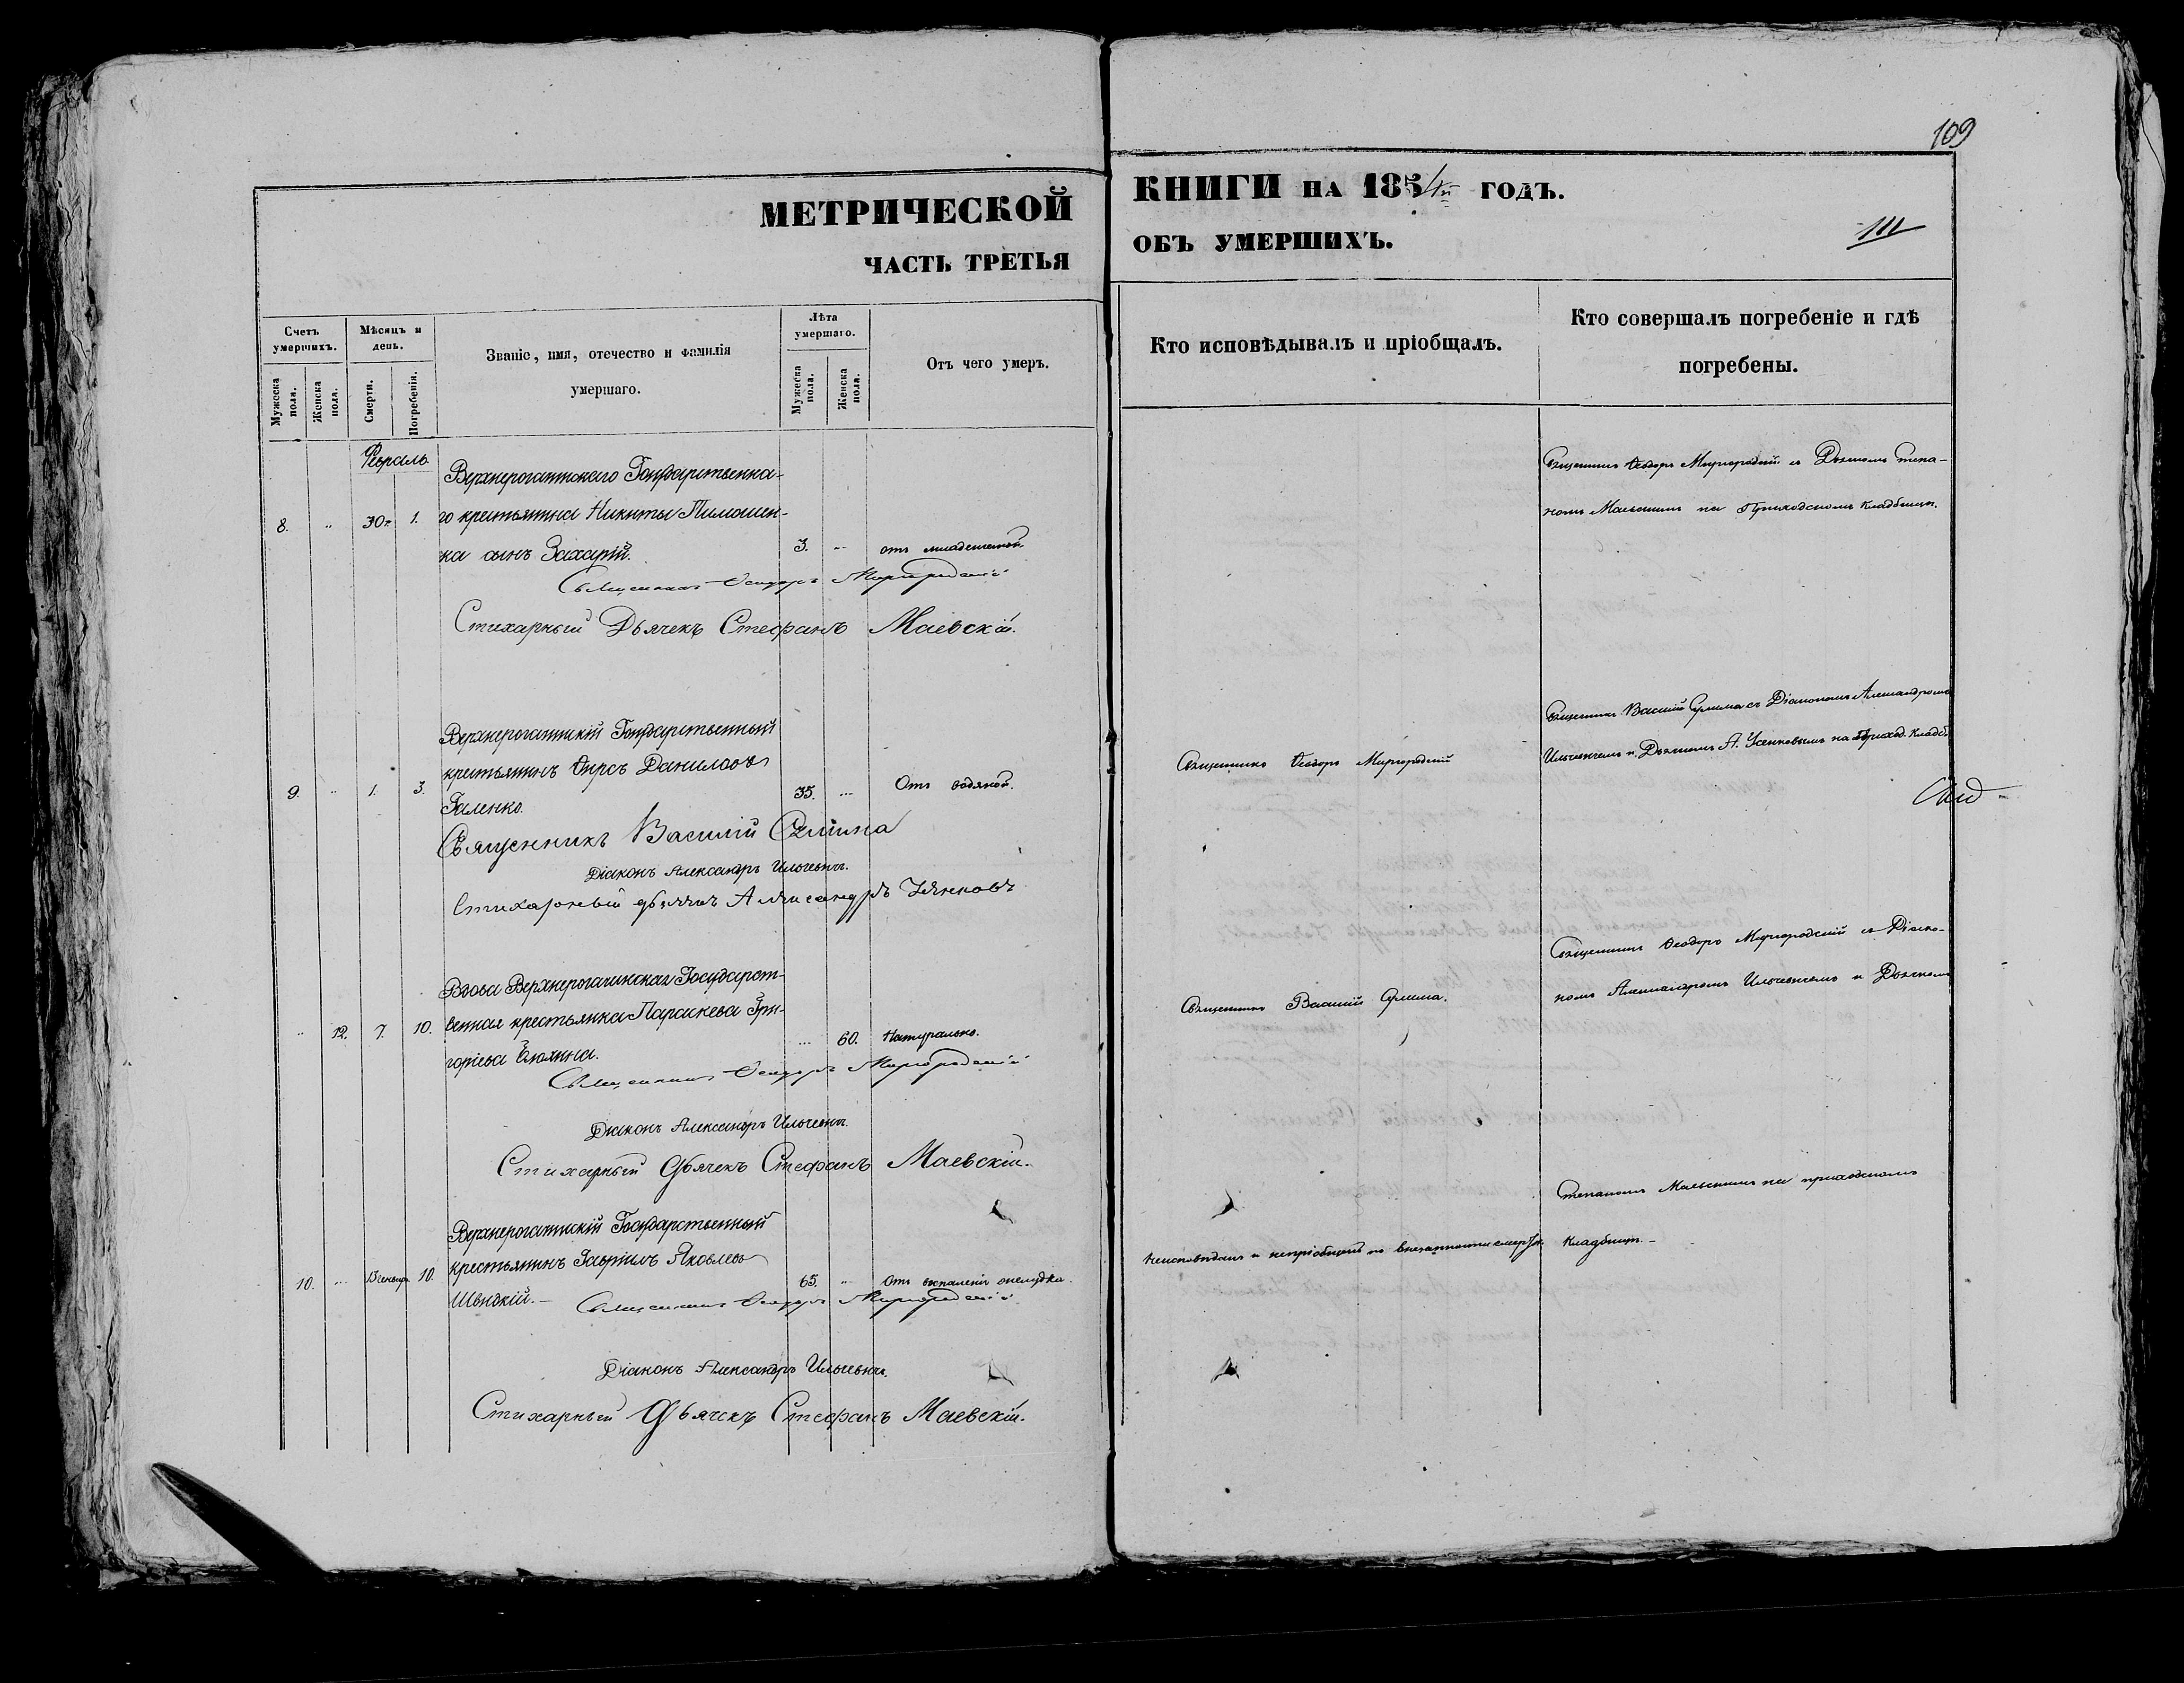 109
МЕТРИЧЕСКОЙ
ЧАСТЬ ТРЕТЬЯ
КНИГИ НА 1854й ГОДЪ.
ОБЪ УМЕРШИХЪ.
111
Счетъ умершихъ.
Мѣсяцъ и день.
Званіе, имя, отечество и фамилія умершаго.
Лѣта умершаго.
Отъ чего умеръ.
Кто исповѣдывалъ и пріобщалъ.
Кто совершалъ погребеніе и гдѣ погребены.
Мужеска пола.
Женска пола.
Смерти.
Погребенія.
Мужеска пола.
Женска пола.
Февраль
Верхнерогачикскаго Государственна-
8. " 30г. 1. го крестьянина Никиты Тимошен-
ка сынъ Захарій. 3. " отъ младенческой
Священникъ Ѳеодоръ Миргородскій
Стихарный Дьячекъ Стефанъ Маевскій.
Священникъ Ѳеодоръ Миргородскій съ Дьячкомъ Степа-
номъ Маевскимъ на Приходскомъ кладбищѣ.
Верхнерогачикскій Государственный
крестьянинъ Ѳирсъ Даниловъ
9. " 1. 3. Галенко. 35. " Отъ водяной.
Священникъ Василій
Діаконъ Александръ Ильчевичъ.
Стихарный дьячекъ Александръ
Священникъ Ѳеодоръ Миргородскій
Священникъ Василій съ Діакономъ Александромъ
Ильчевичемъ и Дьячкомъ А. на Приход. кладб.
Вдова Верхнерогачикская Государст-
" 12. 7. 10. венная крестьянка Параскева Гри-
горіева " 60. Натурально.
Священникъ Ѳеодоръ Миргородскій
Діаконъ Александръ Ильчевичъ.
Стихарный Дьячекъ Стефанъ Маевскій.
Священникъ Василій
Священникъ Ѳеодоръ Миргородскій съ Діако-
номъ Александромъ Ильчевичемъ и Дьячкомъ
Степаномъ Маевскимъ на приходскомъ
кладбищѣ.
Верхнерогачикскій Государственный
крестьянинъ Гавріилъ Яковлевъ
10. " 10. Швидкій. 65. " Отъ воспаленія желудка.
Священникъ Ѳеодоръ Миргородскій
Діаконъ Александръ Ильчевичъ.
Стихарный Дьячекъ Стефанъ Маевскій.
Неисповѣданъ и непріобщенъ по внезапности смерти.